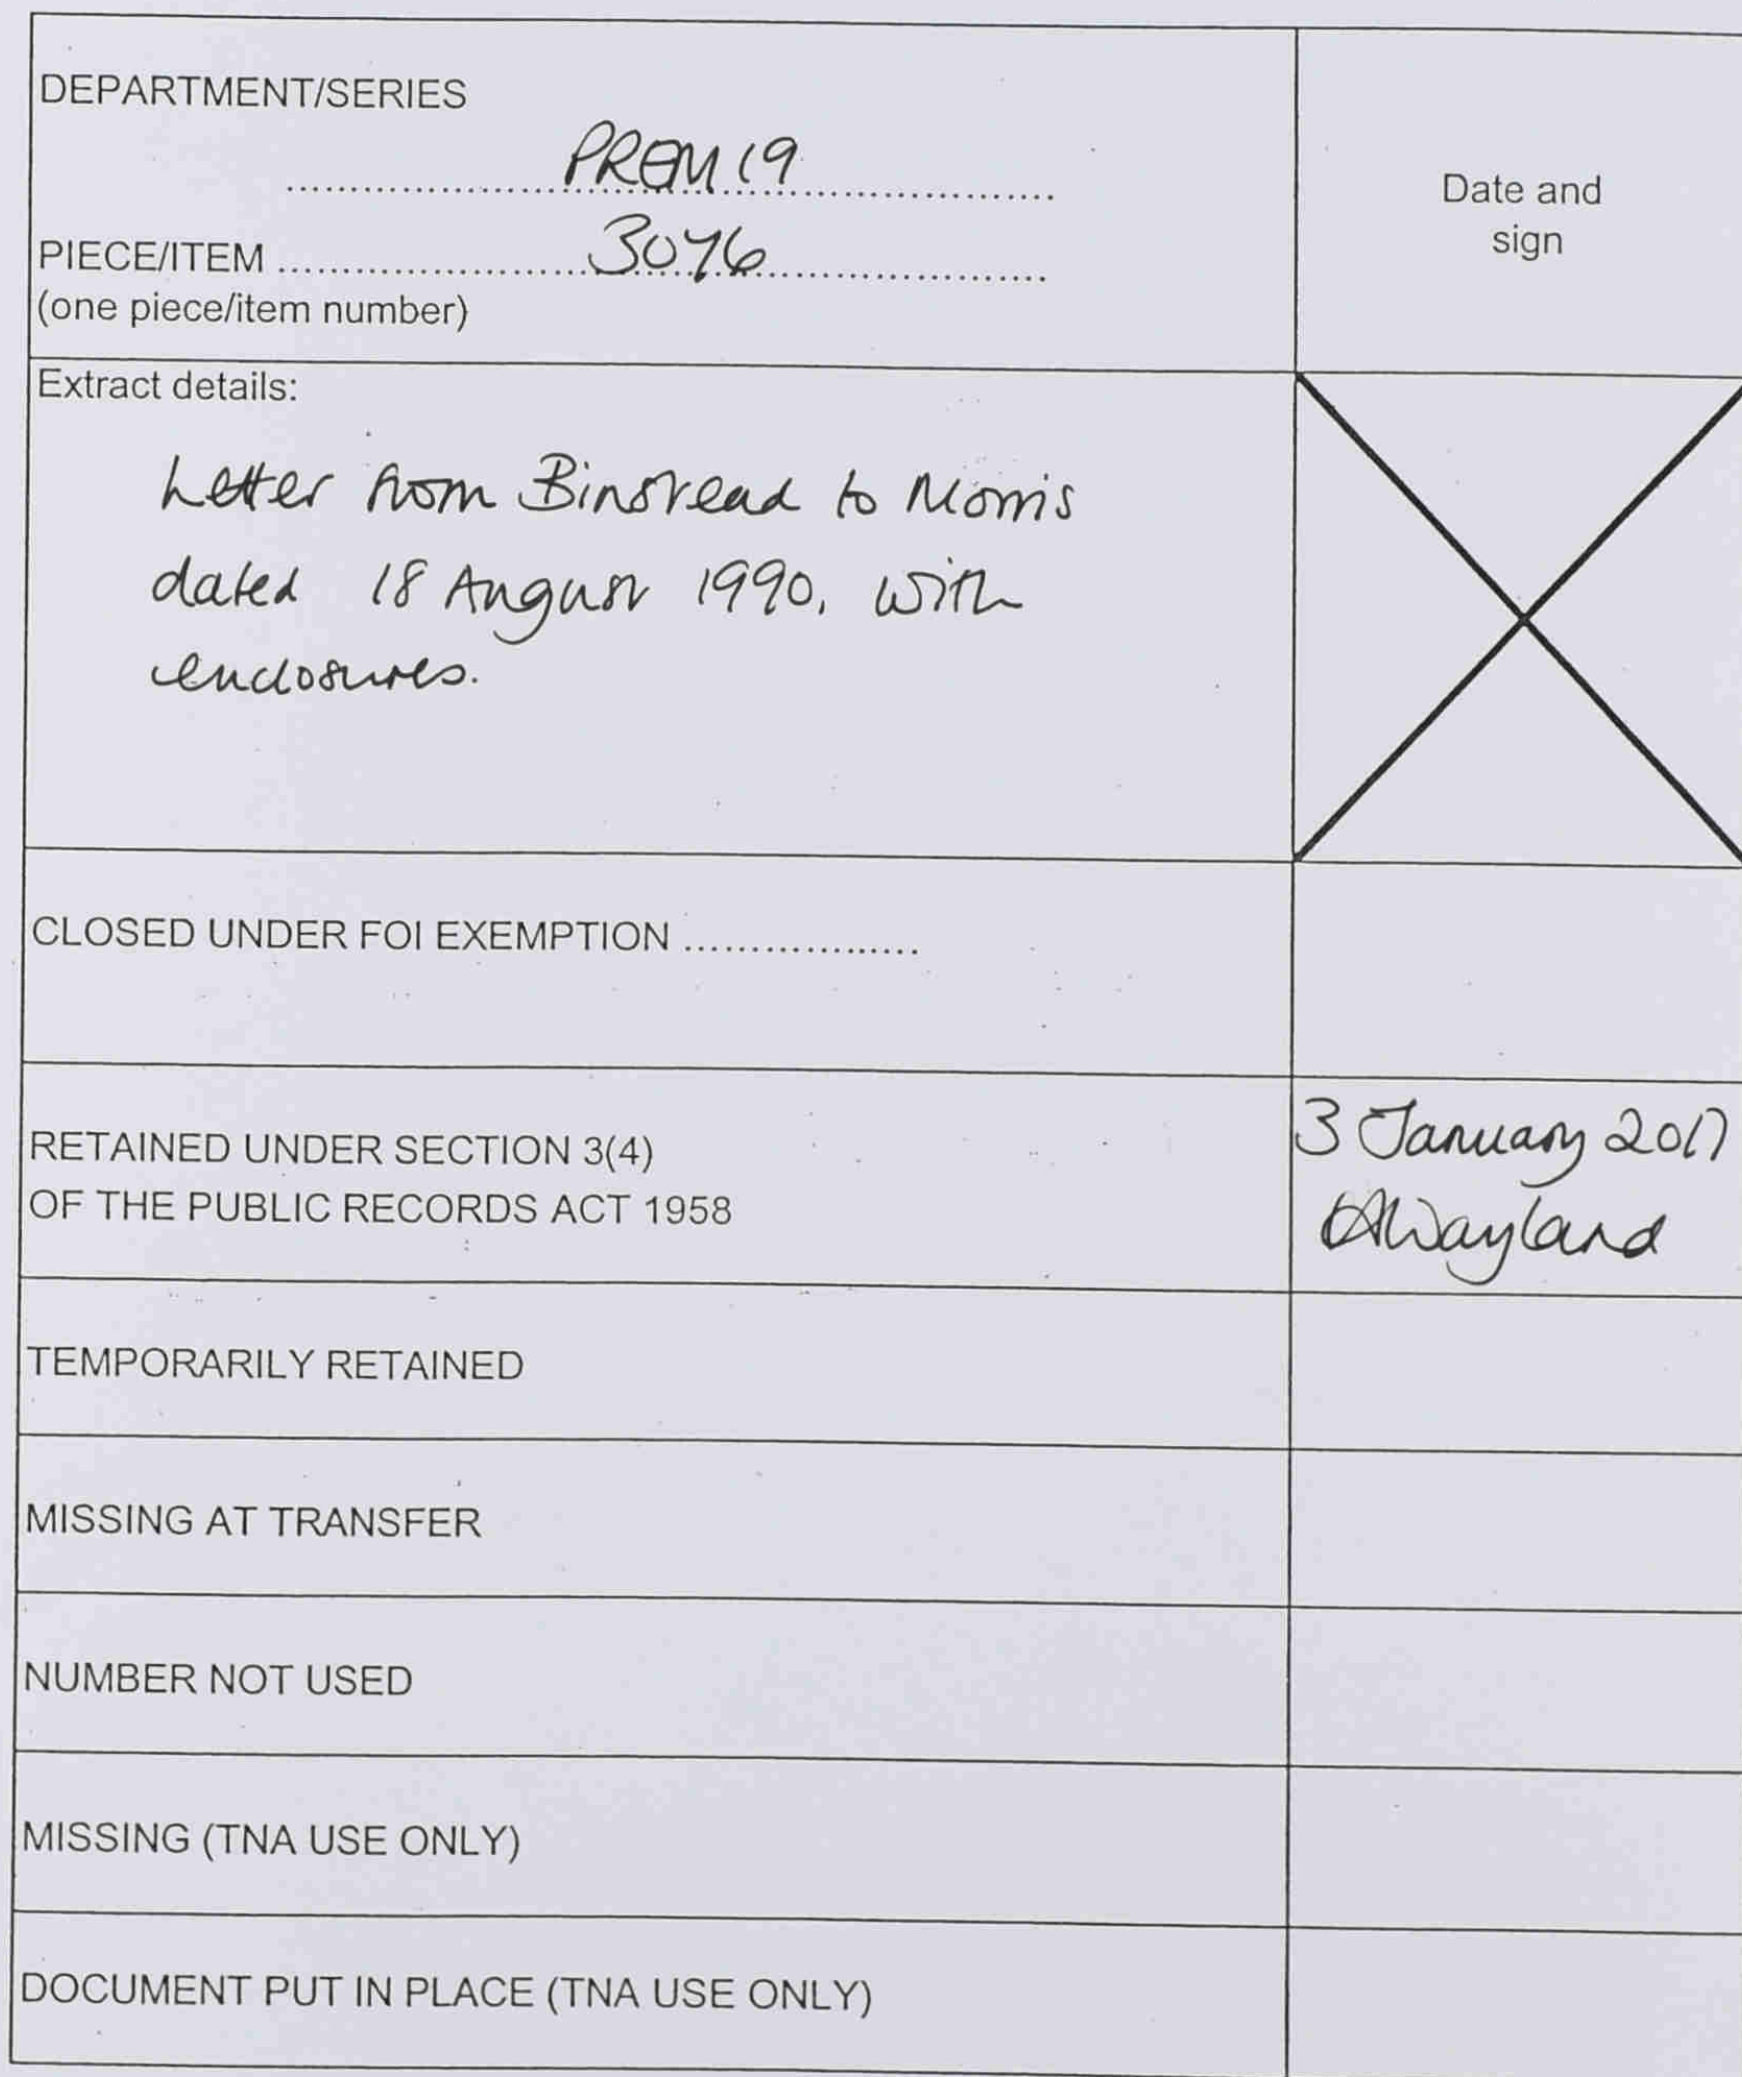 DEPARTMENT/SERIES
PREM 19
Date and
sign
PIECE/ITEM ........ 3076
(one piece/item number)
Extract details:
Letter from Binstead to Morris
dated 18 August 1990, with
enclosures.
CLOSED UNDER FOI EXEMPTION ........
RETAINED UNDER SECTION 3(4)
OF THE PUBLIC RECORDS ACT 1958
3 January 2017
Wayland
TEMPORARILY RETAINED
MISSING AT TRANSFER
NUMBER NOT USED
MISSING (TNA USE ONLY)
DOCUMENT PUT IN PLACE (TNA USE ONLY)